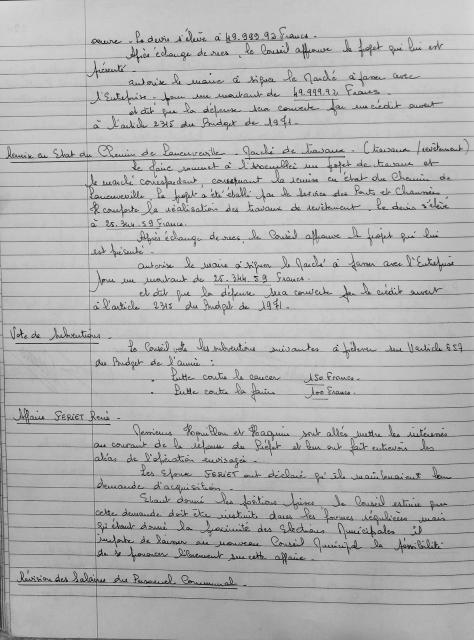 œuvre. Le devis s'élève à 49.999.92 Francs.
Après échange de vues, le Conseil approuve le projet qui lui est
présenté.
autorise le maire à signer le Marché à passer avec
l'Entreprise pour un montant de 49.999.92 Francs.
et dit que la dépense sera couverte par un crédit ouvert
à l'article 2315 du Budget de 1971.
Remise en Etat du Chemin de - Marché de travaux - (travaux / revêtement)
Le Maire soumet à l'assemblée un projet de travaux et
le marché correspondant, concernant la remise en état du Chemin de
Le projet a été établi par le Service des Ponts et Chaussées
Il comporte la réalisation des travaux de revêtement. Le devis s'élève
à 25.344.59 Francs.
Après échange de vues, le Conseil approuve le projet qui lui
est présenté.
autorise le maire à signer le Marché à passer avec l'Entreprise
pour un montant de 25.344.59 Francs.
et dit que la dépense sera couverte par le crédit ouvert
à l'article 2315 du Budget de 1971.
Vote de Subventions.
Le Conseil vote les subventions suivantes à prélever sur l'article 657
du Budget de l'année :
- Lutte contre le cancer 150 Francs.
- Lutte contre la faim 100 Francs.
Affaire FERIET René.
Messieurs et sont allés mettre les intéressés
au courant de la réponse du Préfet et leur ont fait entrevoir les
aléas de l'opération envisagée.
Les Epoux FERIET ont déclaré qu'ils maintenaient leur
demande d'acquisition.
Etant donné les positions prises, le Conseil estime que
cette demande doit être instruite dans les formes régulières mais
qu'étant donné la proximité des Elections Municipales il
importe de laisser au nouveau Conseil Municipal la possibilité
de se prononcer librement sur cette affaire.
Révision des Salaires du Personnel Communal.